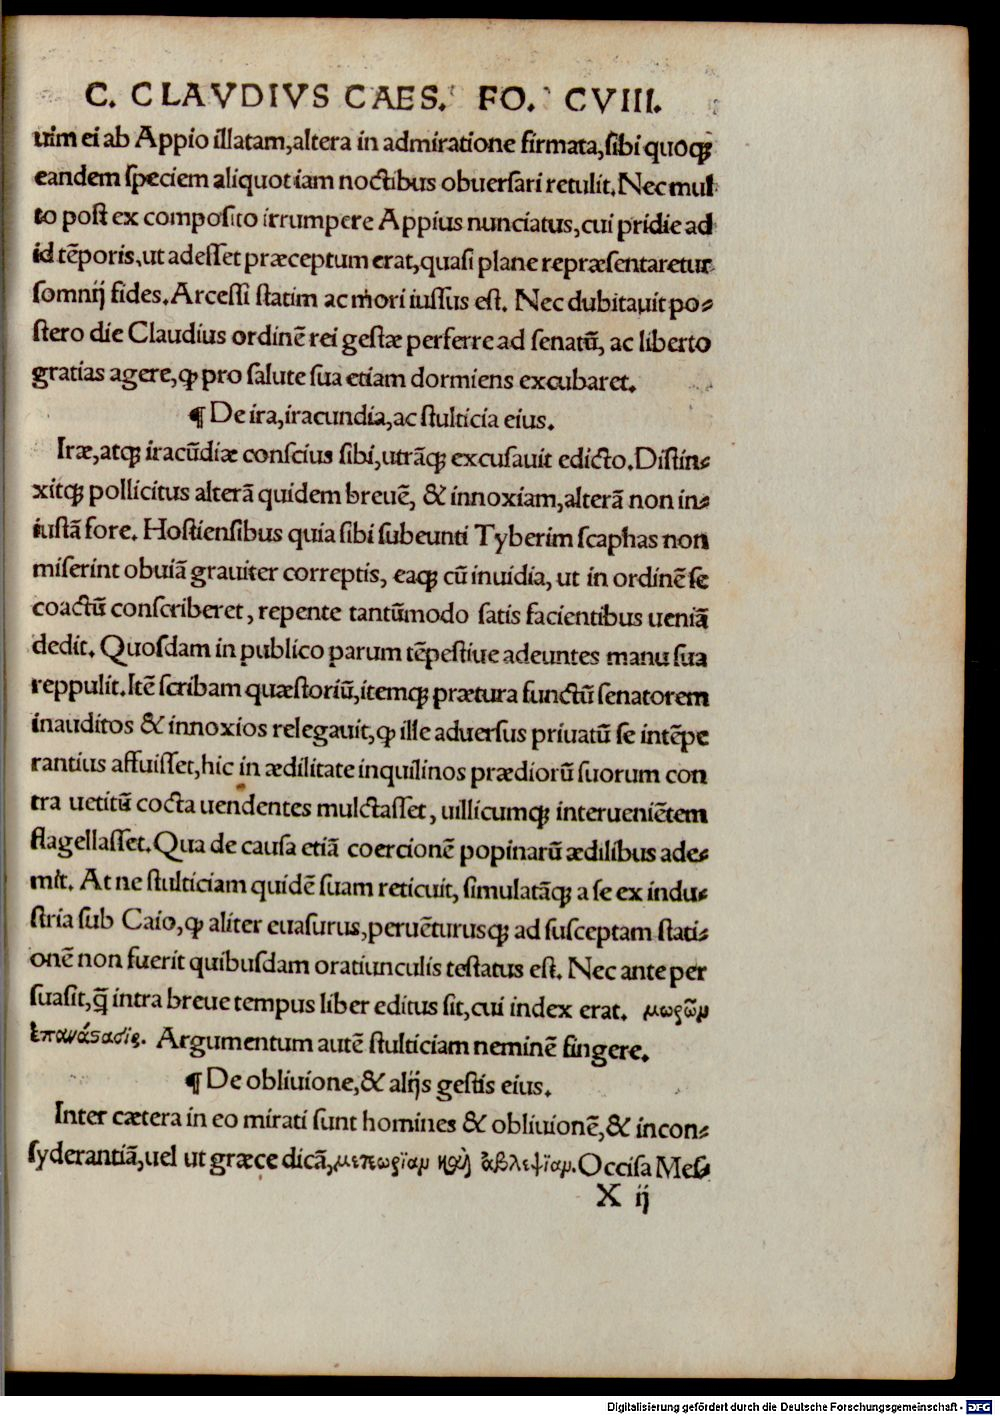 C. CLAVDIVS CAES. FO. CVIII.
uim ei ab Appio illatam, altera in admiratione firmata, sibi quoqꝫ
eandem speciem aliquot iam noctibus obuersari retulit. Nec mul
to post ex composito irrumpere Appius nunciatus, cui pridie ad
id tẽporis, ut adesset præceptum erat, quasi plane repræsentaretur
somnij fides. Arcessi statim ac mori iussus est. Nec dubitauit po⸗
stero die Claudius ordinẽ rei gestæ perferre ad senatũ, ac liberto
gratias agere, ꝙ pro salute sua etiam dormiens excubaret.
¶ De ira, iracundia, ac stulticia eius.
Iræ, atqꝫ iracũdiæ conscius sibi, utrãqꝫ excusauit edicto. Distin⸗
xitqꝫ pollicitus alterã quidem breuẽ, & innoxiam, alterã non in⸗
iustã fore. Hostiensibus quia sibi subeunti Tyberim scaphas non
miserint obuiã grauiter correptis, eaqꝫ cũ inuidia, ut in ordinẽ se
coactũ conscriberet, repente tantũmodo satis facientibus ueniã
dedit. Quosdam in publico parum tẽpestiue adeuntes manu sua
reppulit. Itẽ scribam quæstoriũ, itemqꝫ prætura functũ senatorem
inauditos & innoxios relegauit, ꝙ ille aduersus priuatũ se intẽpe
rantius affuisset, hic in ædilitate inquilinos prædiorũ suorum con
tra uetitũ cocta uendentes mulctasset, uillicumqꝫ interueniẽtem
flagellasset. Qua de causa etiã coercionẽ popinarũ ædilibus ade⸗
mit. At ne stulticiam quidẽ suam reticuit, simulatãqꝫ a se ex indu⸗
stria sub Caio, ꝙ aliter euasurus, peruẽturusqꝫ ad susceptam stati⸗
onẽ non fuerit quibusdam oratiunculis testatus est. Nec ante per
suasit, q̃ intra breue tempus liber editus sit, cui index erat. μωρῶμ
ἐπανάςασις. Argumentum autẽ stulticiam neminẽ fingere.
¶ De obliuione, & alijs gestis eius.
Inter cætera in eo mirati sunt homines & obliuionẽ, & incon⸗
syderantiã, uel ut græce dicã, μεπωρϊαμ καὶ ἀβλεψϊαμ. Occisa Mes⸗
X ij
Digitalisierung gefördert durch die Deutsche Forschungsgemeinschaft - DFG